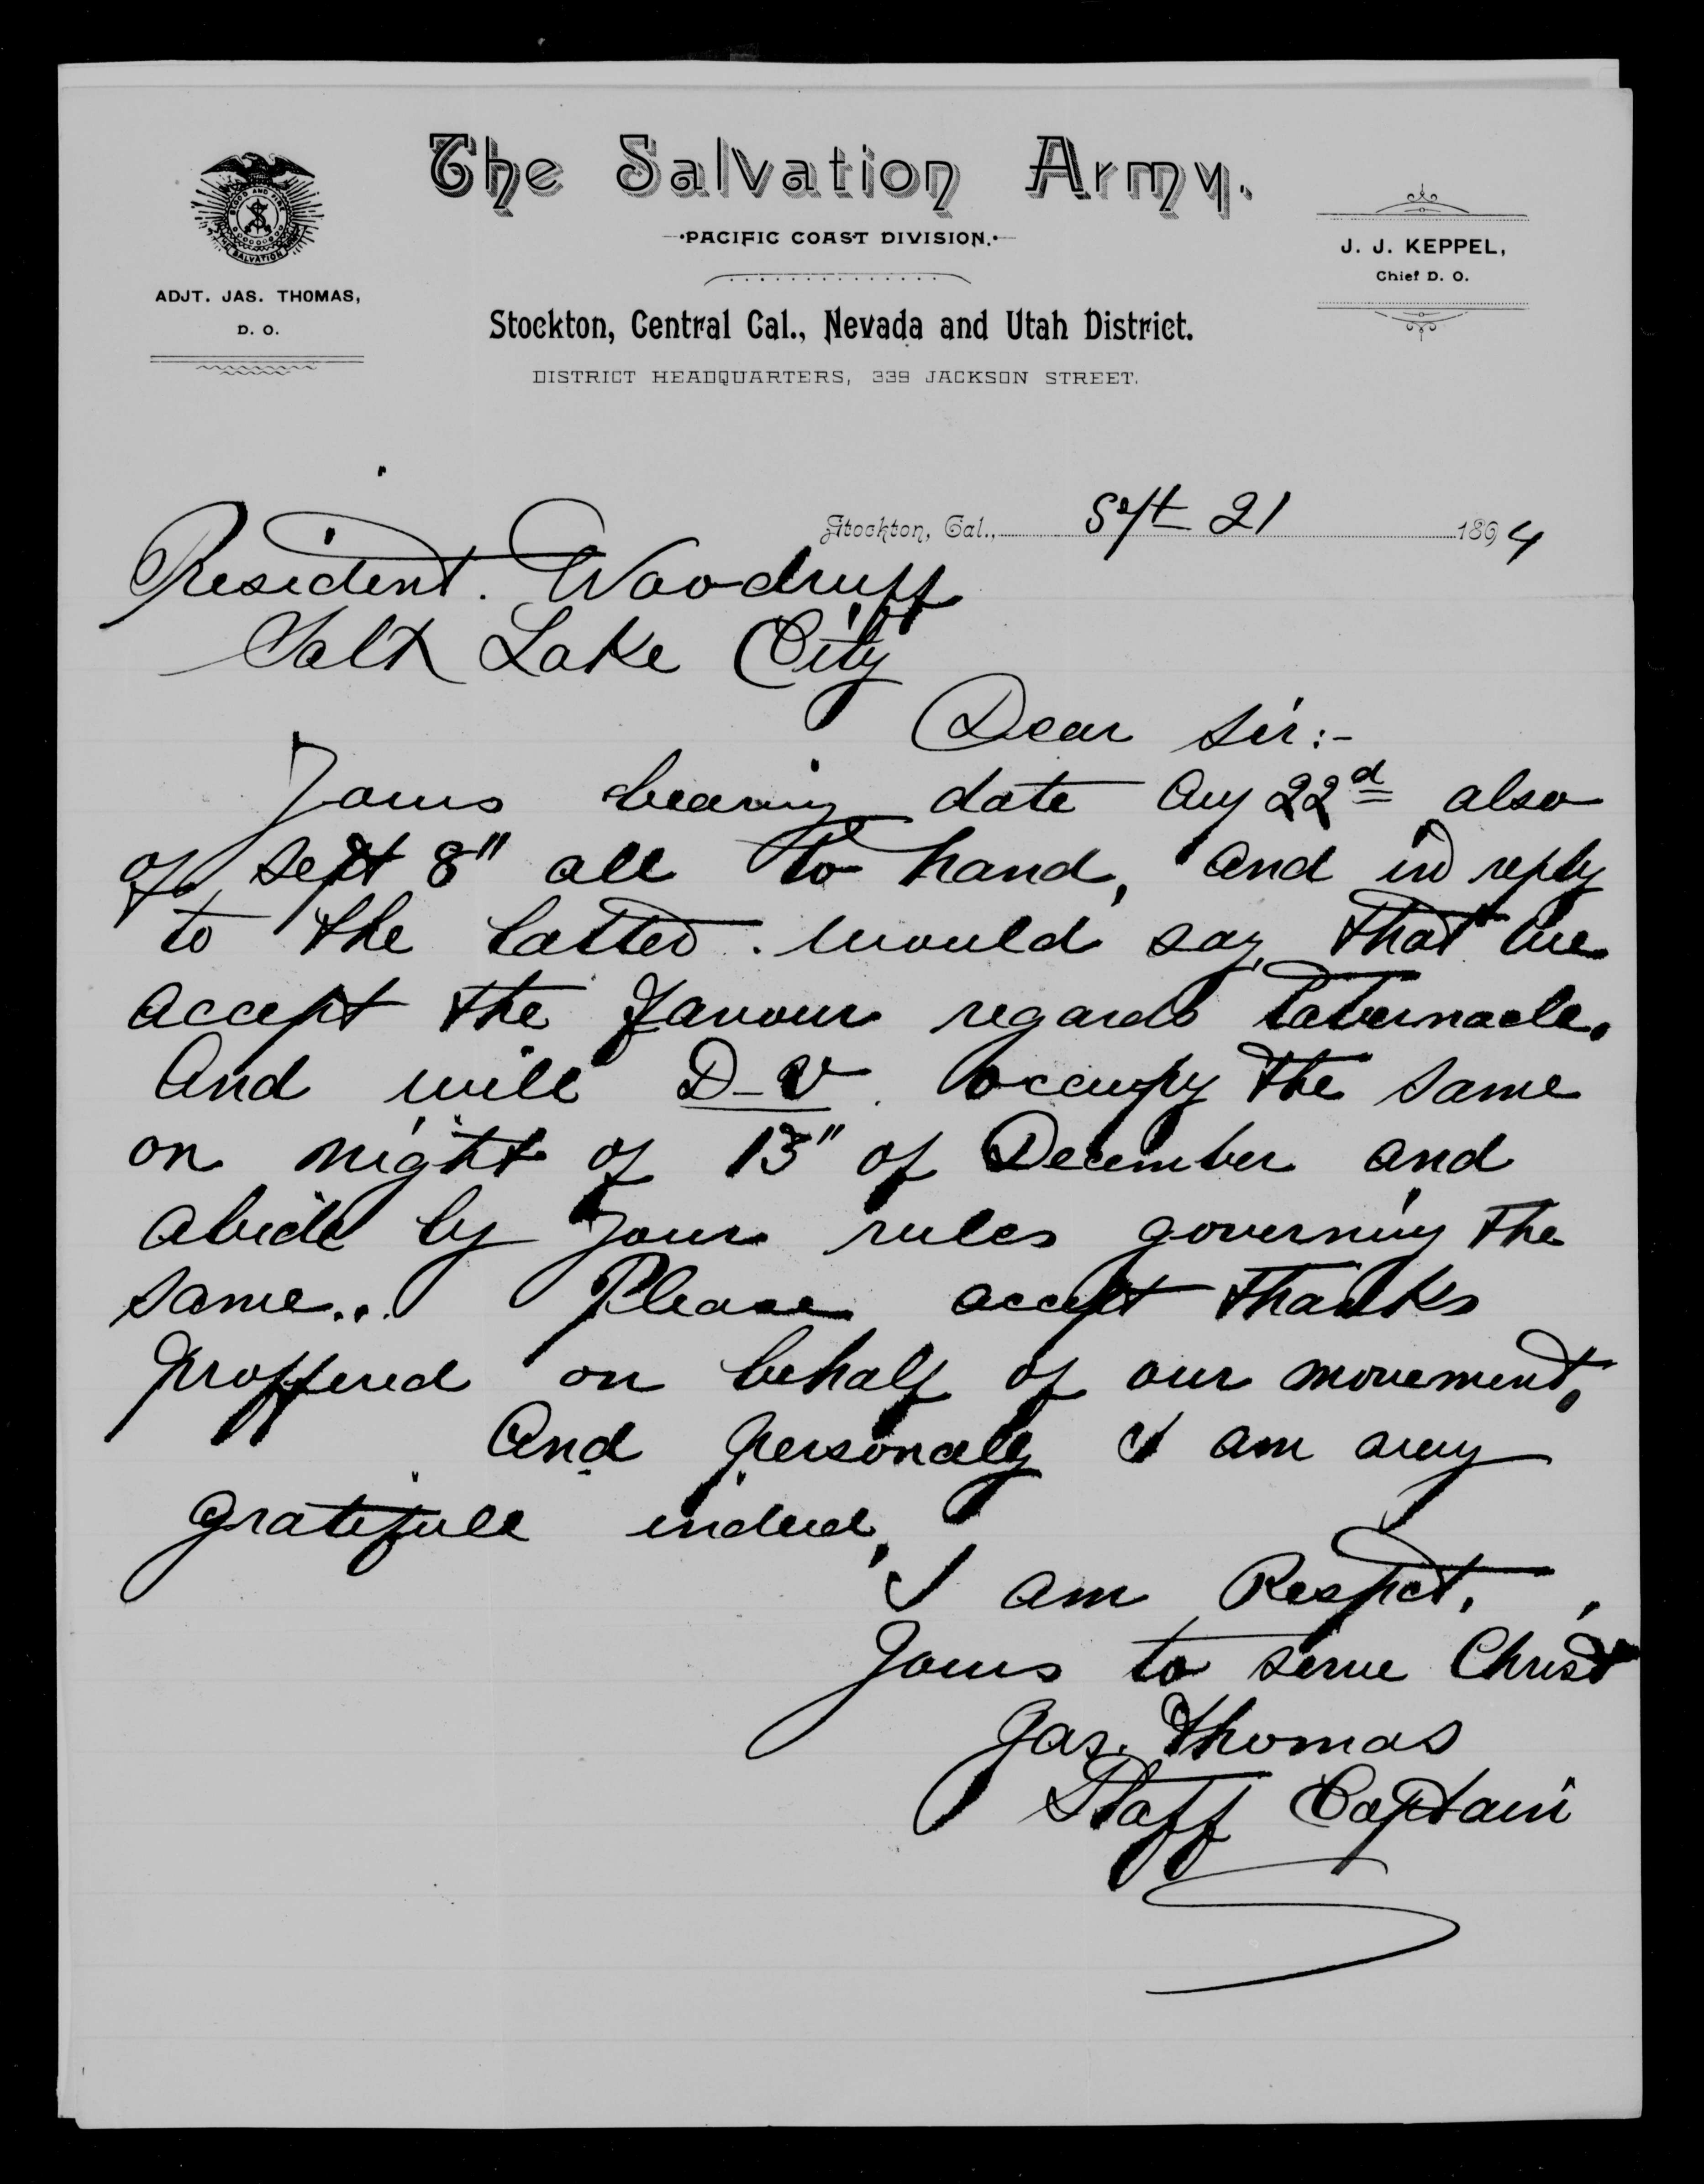 The Salvation Army.
PACIFIC COAST DIVISION.
BLOOD AND FIRE
S
THE SALVATION ARMY
ADJT. JAS. THOMAS,
D. O.
J. J. KEPPEL,
Chief D. O.
Stockton, Central Cal., Nevada and Utah District.
DISTRICT HEADQUARTERS, 339 JACKSON STREET.
Stockton, Cal., Sept 21 1894
President. Woodruff
Salt Lake City
Dear Sir:-
Yours bearing date Aug 22d also
of Sept 8" all to hand, And in reply
to the latter. would say, that we
accept the favour regards tabernacle.
And will D-V. occupy the same
on night of 13" of December and
abide by your rules governing the
same.. Please accept thanks
proffered on behalf of our movement,
And personally I am very
gratefull indeed,
I am Respct.,
Yours to serve Christ
Jas. Thomas
Staff Captain